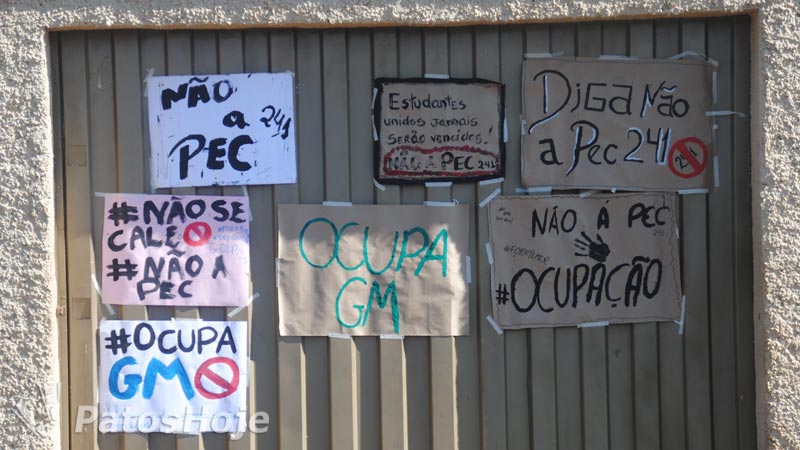 NÃO
a 241
PEC
Estudantes
unidos jamais
SERÃO vencidos!
NÃO A PEC 241
DiGa Não
a Pec 241
241
#NÃO SE
CALE
#NÃO A
PEC
OCUPA
GM
NÃO À PEC
241
#FORATEMER
#OCUPAÇÃO
#OCUPA
GM
PatosHoje